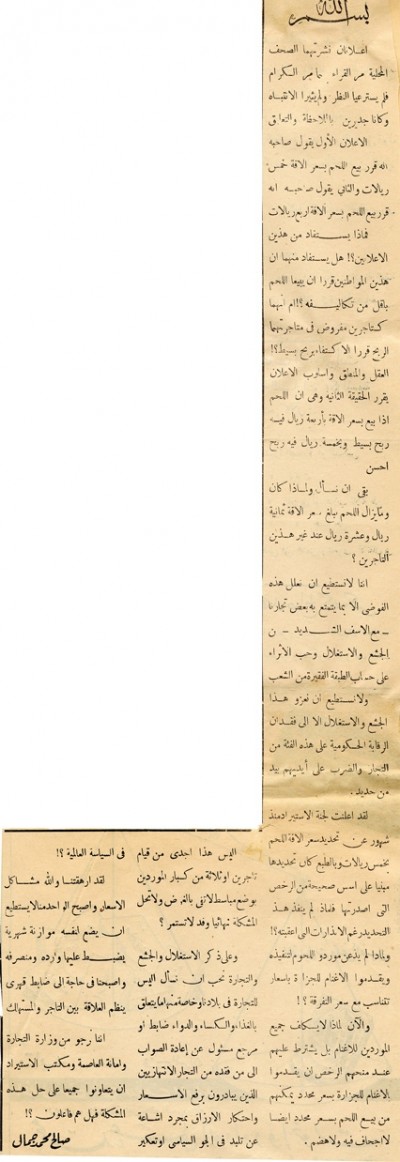 بسم الله
اعلانان نشرتهما الصحف
المحلية مر القراء بهما مر الكرام
فلم يسترعيا النظر ولم يثيرا الانتباه
وكانا جديرين بالملاحظة والتعليق
الاعلان الأول يقول صاحبه
انه قرر بيع اللحم بسعر الاقة خمس
ريالات والثاني يقول صاحبه انه
قرر بيع اللحم بسعر الاقة اربع ريالات
فماذا يستفاد من هذين
الاعلانين؟! هل يستفاد منهما ان
هذين المواطنين قررا ان يبيعا اللحم
باقل من تكاليفه ؟! ام انهما
كتاجرين مفروض في متاجرتهما
الربح قررا الاكتفاء بربح بسيط؟!
العقل والمنطق واسلوب الاعلان
يقرر الحقيقة الثانيه وهى ان اللحم
اذا بيع بسعر الاقة بأربعة ريال فيه
ربح بسيط وبخمسة ريال فيه ربح
احسن
بقى ان نسأل ولماذا كان
ومايزال اللحم يباع بسعر الاقة ثمانية
ريال وعشرة ريال عند غير هذين
التاجرين ؟
اننا لانستطيع ان نعلل هذه
الفوضى الا بما يتمتع به بعض تجارنا
ـ مع الاسف الشديد ـ من
الجشع والاستغلال وحب الاثراء
على حساب الطبقة الفقيرة من الشعب
ولانستطيع ان نعزو هذا
الجشع والاستغلال الا الى فقدان
الرقابة الحكومية على هذه الفئة من
التجار والضرب على أيديهم بيد
من حديد .
لقد اعلنت لجنة الاستيراد منذ
شهور عن تحديد سعر الاقة اللحم
بخمس ريالات وبالطبع كان تحديدها
مبنيا على اسس صحيحة من الرخص
التى اصدرتها فلماذا لم ينفذ هذا
التحديد رغم الانذارات التى اعقبته؟!
ولماذا لم يذعن موردو اللحوم لتنفيذه
ويقدموا الاغنام للجزارة باسعار
تتناسب مع سعر التفرقة ؟!
والآن لماذا لايكلف جميع
الموردين للاغنام بل يشترط عليهم
عند منحهم الرخص ان يقدموا
الاغنام للجزارة بسعر محدد يمكنهم
من بيع اللحم بسعر محدد ايضا
لااجحاف فيه ولاهضم .
اليس هذا اجدى من قيام
تاجرين او ثلاثة من كبار الموردين
بوضع مباسط لاتفى بالغرض ولاتحل
المشكلة نهائيا وقد لاتستمر ؟
وعلى ذكر الاستغلال والجشع
والتجارة نحب ان نسأل اليس
للتجارة فى بلادنا وخاصة منها ما يتعلق
بالغذاء والكساء والدواء ضابط او
مرجع مسئول عن إعادة الصواب
الى من فقده من التجار الانتهازيين
الذين يبادرون برفع الاسعار
واحتكار الارزاق بمجرد اشاعة
عن تلبد فى الجو السياسى او تعكير
فى السياسة العالمية ؟!
لقد ارهقتنا والله مشاكل
الاسعار واصبح الواحد منا لايستطيع
ان يضع لنفسه موازنة شهرية
يضبط عليها وارده ومنصرفه
واصبحنا فى حاجة الى ضابط قهرى
ينظم العلاقة بين التاجر والمستهلك
اننا نرجو من وزارة التجارة
وامانة العاصمة ومكتب الاستيراد
ان يتعاونوا جميعا على حل هذه
المشكلة فهل هم فاعلون ؟!
صالح محمد جمال